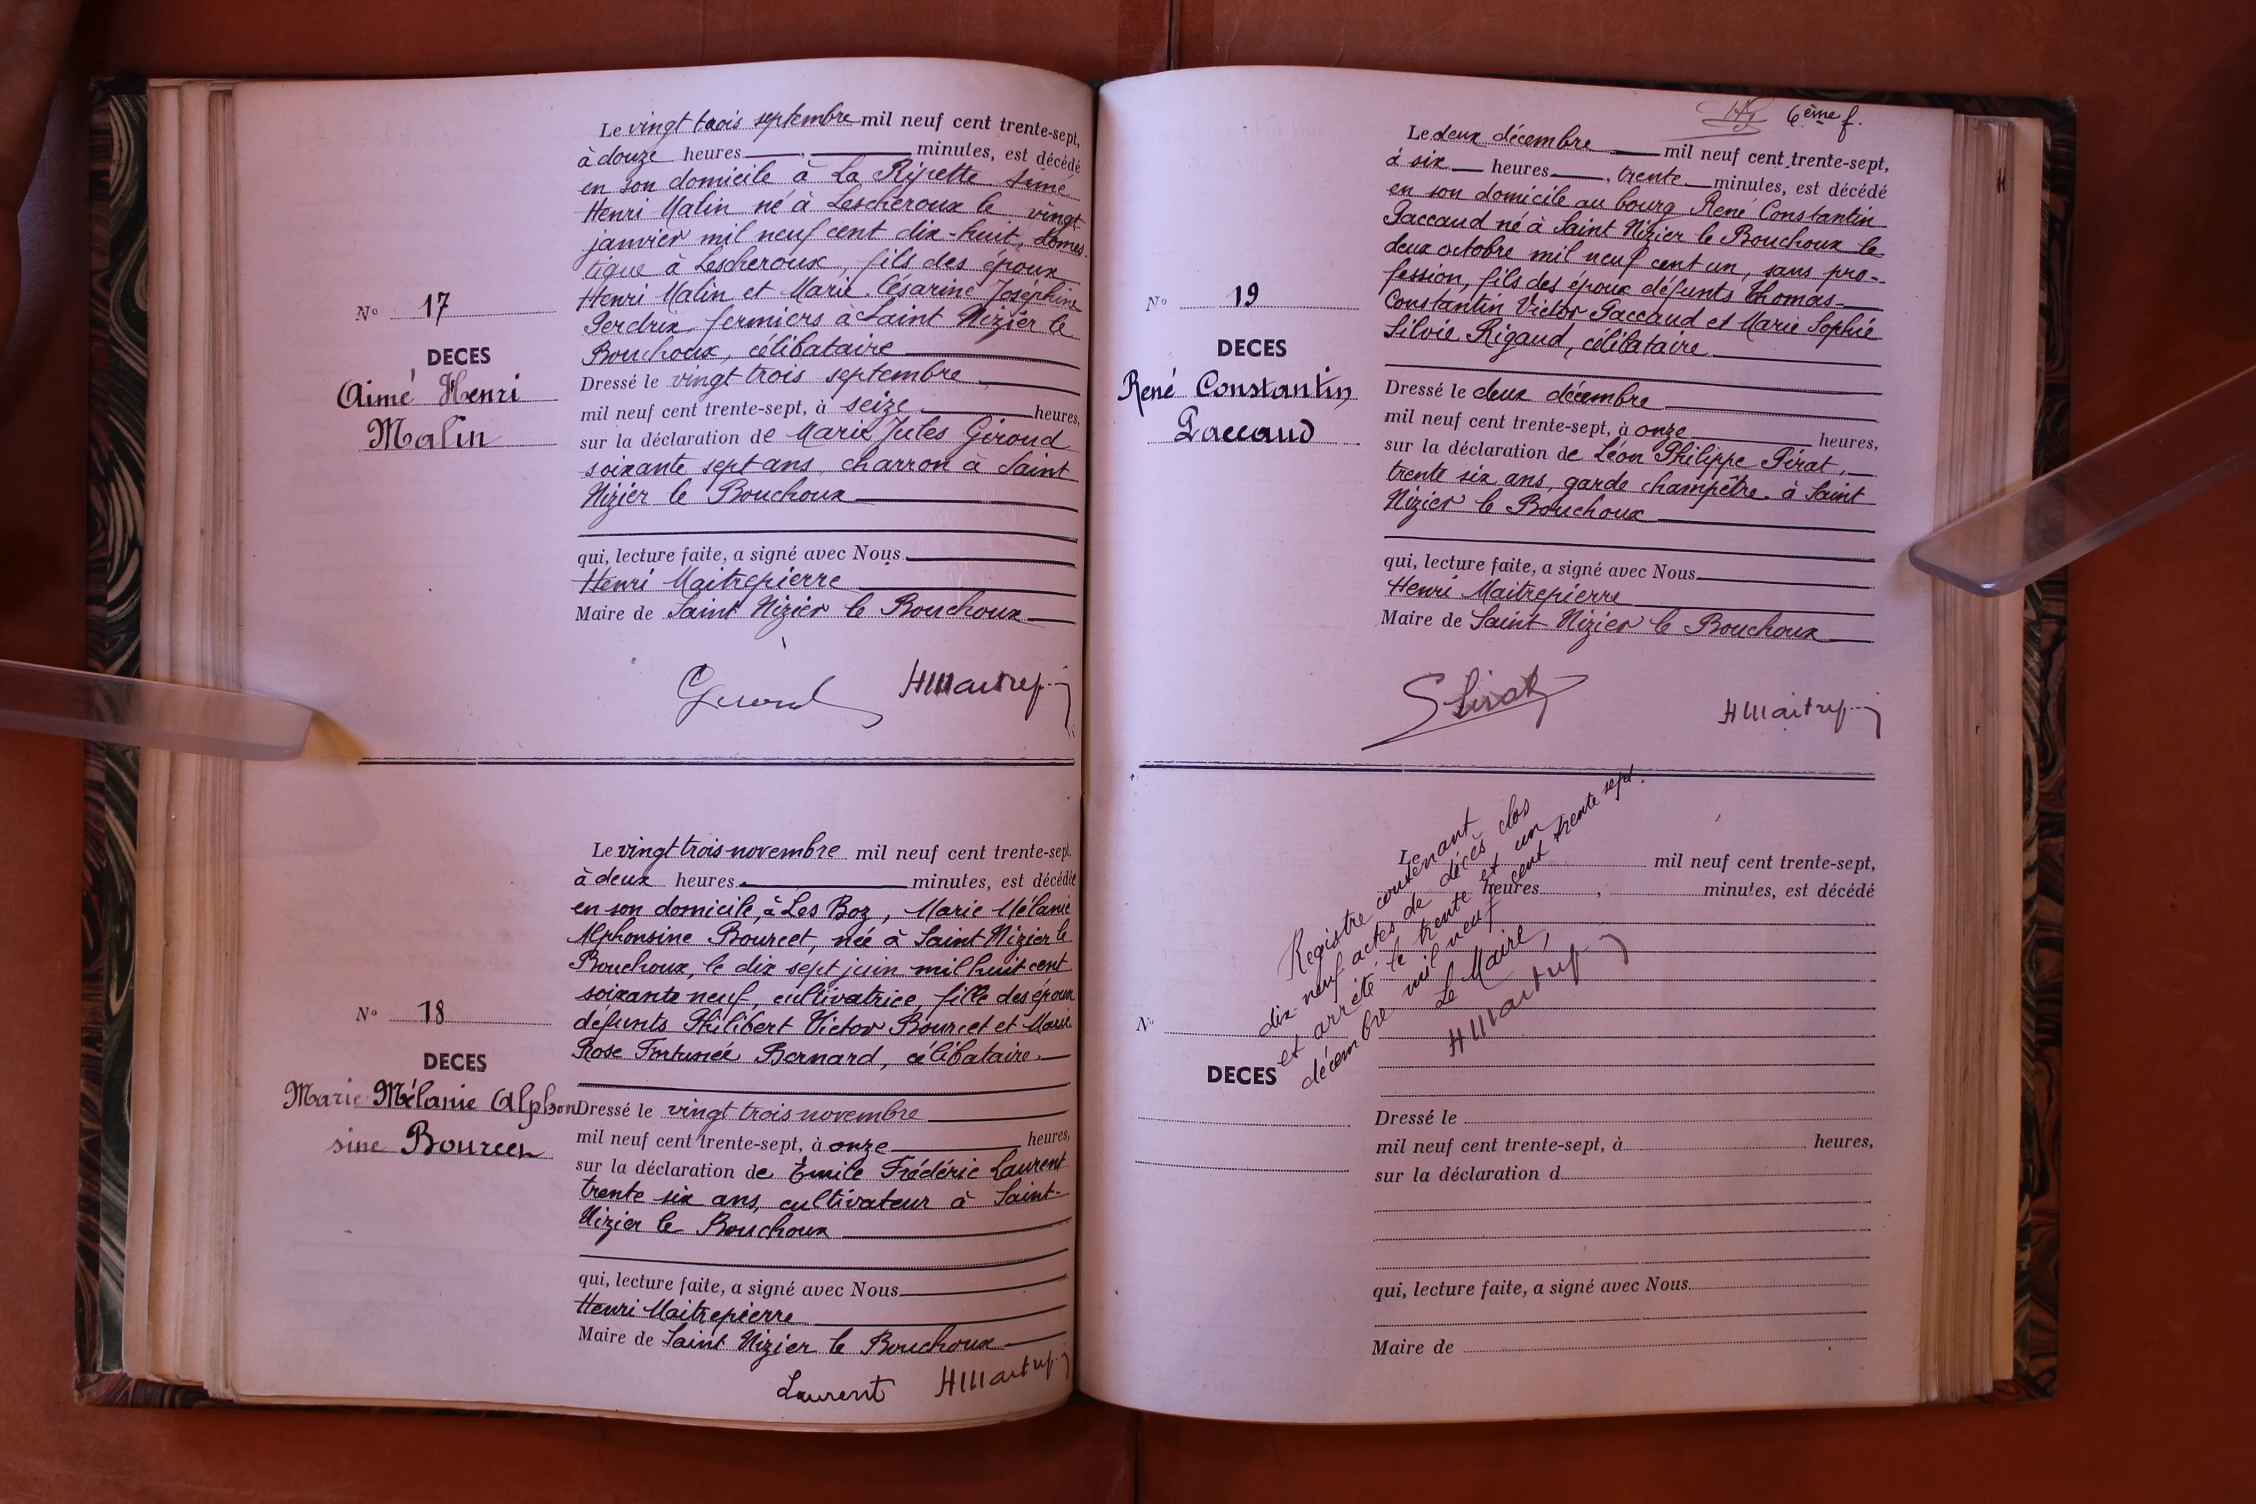 Le vingt trois septembre mil neuf cent trente-sept,
à douze heures , minutes, est décédé
en son domicile à La Ripette Aimé
Henri Malin né à Lescheroux le vingt
janvier mil neuf cent dix-huit, domes-
tique à Lescheroux, fils des époux
Henri Malin et Marie Césarine Joséphine
Perdrix fermiers à Saint Nizier le
Bouchoux, célibataire
N° 17
DECES
Aimé Henri
Malin
Dressé le vingt trois septembre
mil neuf cent trente-sept, à seize heures,
sur la déclaration de Marie Jules Giroud
soixante sept ans, charron à Saint
Nizier le Bouchoux
qui, lecture faite, a signé avec Nous
Henri Maitrepierre
Maire de Saint Nizier le Bouchoux
Giroud HMaitrep
Le vingt trois novembre mil neuf cent trente-sept,
à deux heures minutes, est décédée
en son domicile, à Les Boz, Marie Mélanie
Alphonsine Bourcet, née à Saint Nizier le
Bouchoux, le dix sept juin mil huit cent
soixante neuf, cultivatrice, fille des époux
défunts Philibert Victor Bourcet et Marie
Rose Fortunée Bernard, célibataire.
N° 18
DECES
Marie Mélanie Alphon
sine Bourcet
Dressé le vingt trois novembre
mil neuf cent trente-sept, à onze heures,
sur la déclaration de Emile Frédéric Laurent
trente six ans, cultivateur à Saint-
Nizier le Bouchoux
qui, lecture faite, a signé avec Nous
Henri Maitrepierre
Maire de Saint Nizier le Bouchoux
Laurent HMaitrep
6ème f.
Le deux décembre mil neuf cent trente-sept,
à six heures , trente minutes, est décédé
en son domicile au bourg René Constantin
Paccaud né à Saint Nizier le Bouchoux le
deux octobre mil neuf cent un, sans pro-
fession, fils des époux défunts Thomas
Constantin Victor Paccaud et Marie Sophie
Silvie Rigaud, célibataire
N° 19
DECES
René Constantin
Paccaud
Dressé le deux décembre
mil neuf cent trente-sept, à onze heures,
sur la déclaration de Léon Philippe Pirat,
trente six ans, garde champêtre à Saint
Nizier le Bouchoux
qui, lecture faite, a signé avec Nous
Henri Maitrepierre
Maire de Saint Nizier le Bouchoux
Pirat HMaitrep
Registre contenant
dix-neuf actes de décès clos
et arrêté le trente et un
décembre mil neuf cent trente sept.
Le Maire,
HMaitrep
Le mil neuf cent trente-sept,
heures , minutes, est décédé
N°
DECES
Dressé le
mil neuf cent trente-sept, à heures,
sur la déclaration d
qui, lecture faite, a signé avec Nous
Maire de